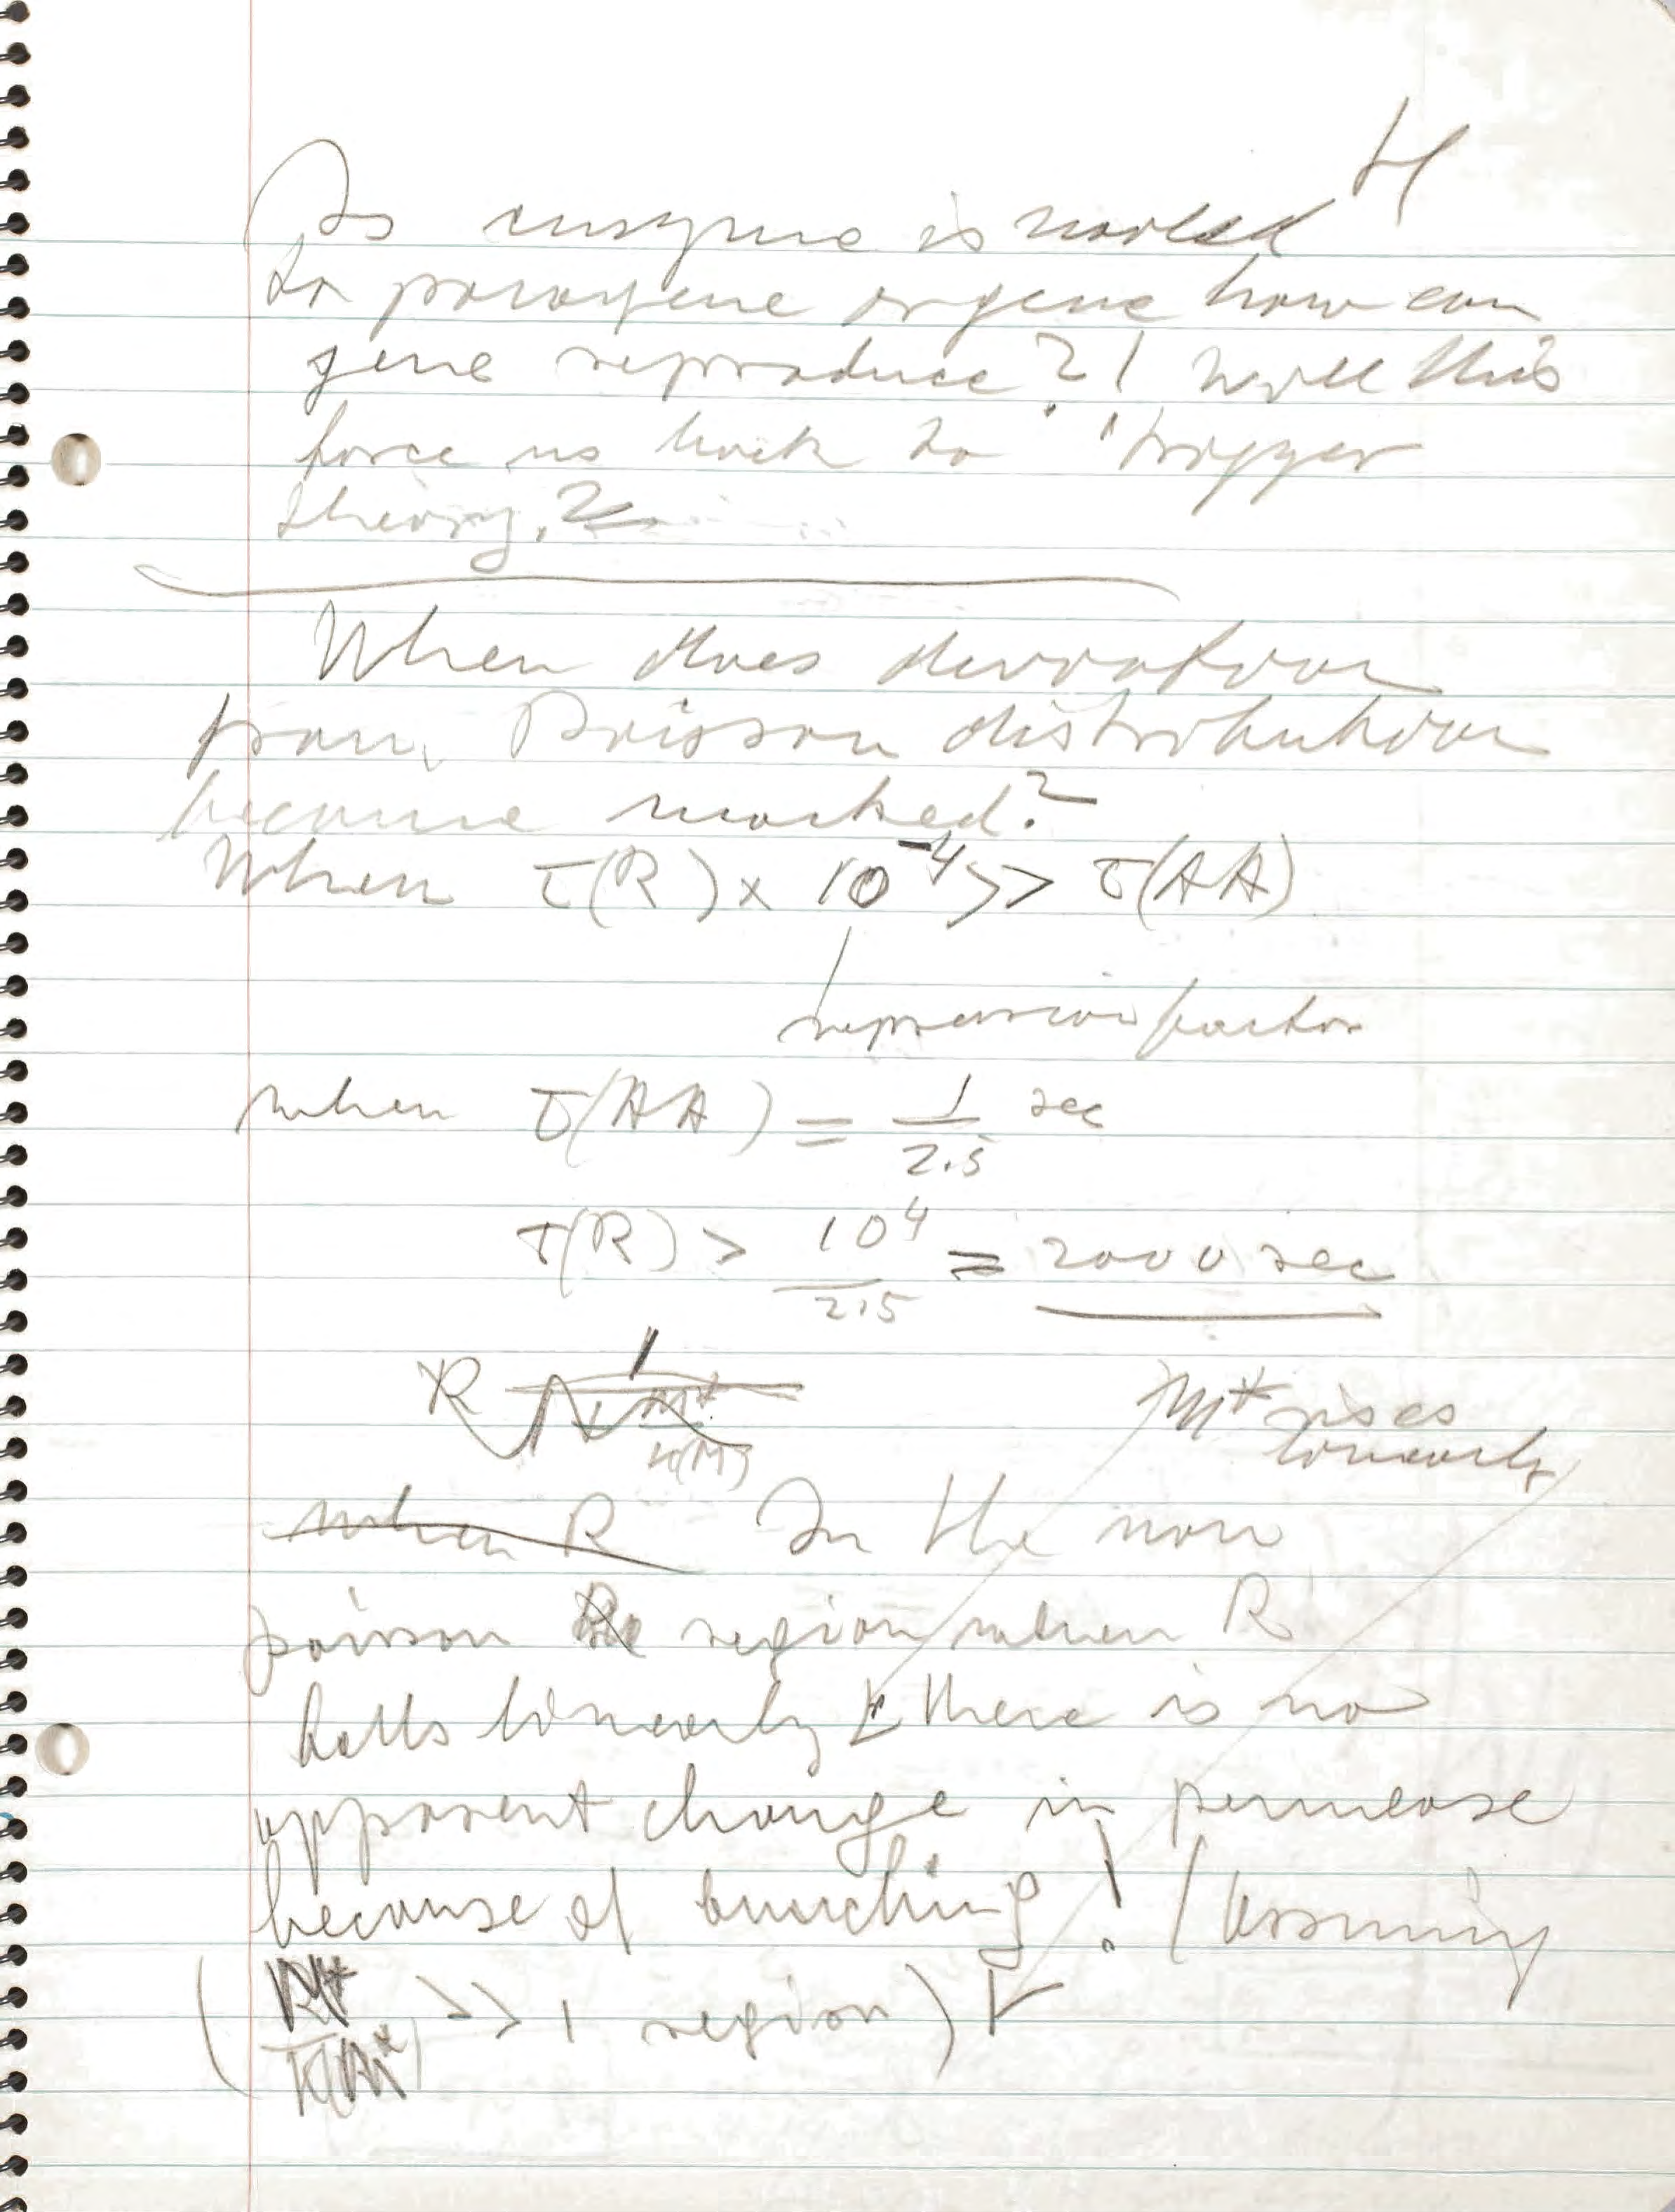 H
As enzyme is
to paragene or gene how can
gene reproduce?! Will this
force us back to "trigger
theory.?
When does deviation
from Poisson distribution
become marked?
When τ(R) x 10⁻⁴ >> τ(AA)
repression factor
when τ(AA) = 1/2.5 sec
τ(R) > 10⁴/2.5 = 2000 sec
R
M* rises
linearly
when R In the non
poisson region when R
falls linearly there is no
apparent change in permease
because of bunching! (Assuming
>> 1 region)